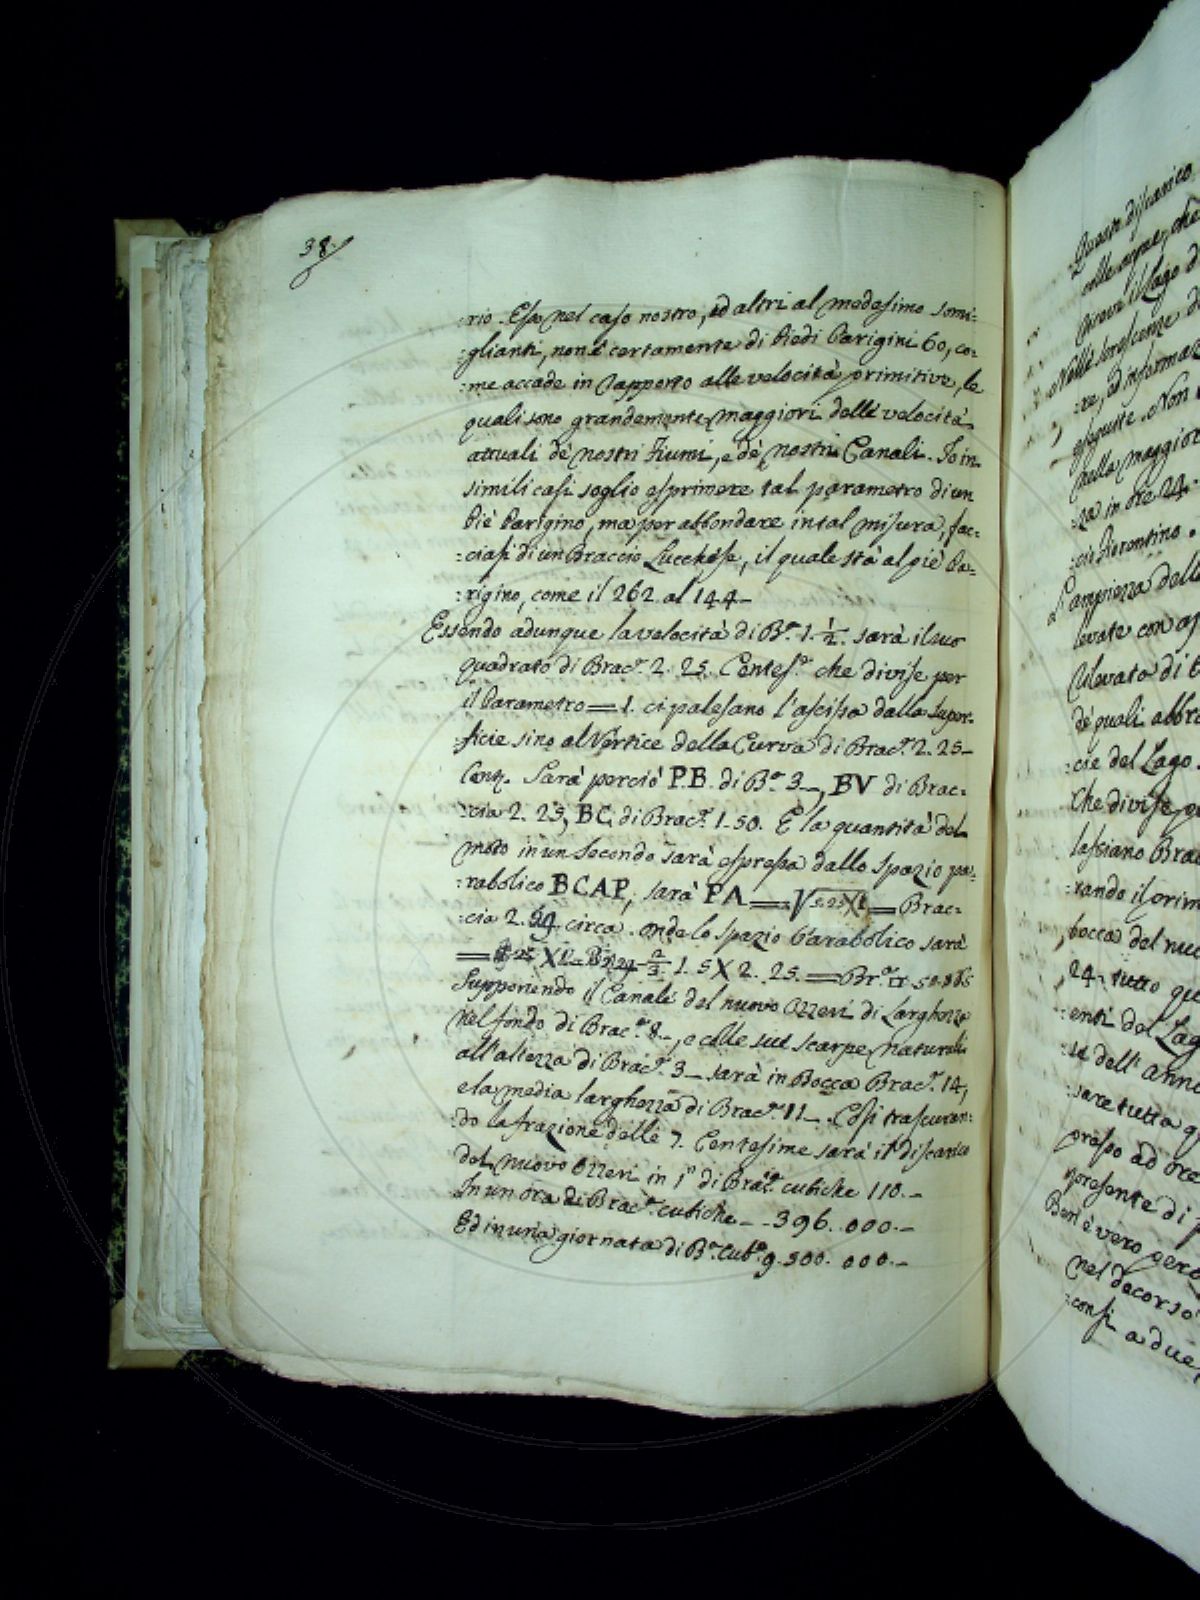 38.
rio. Esso nel caso nostro, ed altri al medesimo somi=
:glianti, non è certamente di Piedi Parigini 60, co=
:me accade in rapporto alle velocità primitive, le
quali sono grandemente maggiori delle velocità
attuali de nostri Fiumi, e de nostri Canali. Io in
simili casi soglio esprimere tal parametro di un
Piè Parigino, ma per abbondare in tal misura, fac=
:ciasi di un Braccio Lucchese, il quale stà al piè Pa=
:rigino, come il 262. al 144.
Essendo adunque la velocità di Bª. 1. 1/2. sarà il suo
quadrato di Bracª. 2. 25. Centesª. che divise per
il Parametro = 1. ci palesano l'ascissa dalla super=
:ficie sino al Vertice della Curva di Bracª. 2. 25
Cent. Sarà perciò P.B. di Bª. 3., BV di Brac=
:cia 2. 25, BC. di Bracª. 1. 50. E la quantità del
moto in un secondo sarà espressa dallo spazio pa=
:rabolico BCAP, sarà PA = √5.25X1 = Brac=
:cia 2. circa. onde lo spazio Parabolico sarà
2/3. 1. 5 X 2. 25. = Brª.
Supponendo il Canale del nuovo Ozzeri di Larghezza
nel fondo di Bracª. 8., e colle sue scarpe naturali
all'altezza di Bracª. 3 sarà in Bocca Bracª. 14,
e la media larghezza di Bracª. 11. Così trascuran=
:do la frazione delle 7. Centesime sarà il discarico
del nuovo Ozzeri in 1" di Bracª. cubiche 110.
In un ora di Bracª. cubiche 396. 000.
Ed in una giornata di Bª. Cubª. 9. 500. 000.
Questo discarico
colle acque, che
riceve il Lago
Nelle
:re, ed informaz
eseguite. Non
nella maggior
:za in ore 24.
:cio Fiorentino.
L'ampiezza dell
levate con
rilevato di
de quali abbra
:cie del Lago.
che divise
lasciano Brac
:rando il prim
bocca del nuo
24. tutto qu
:enti del Lag
dell'anno
:sare tutta q
presso ad ore
presente di
Ben è vero però
nel decorso
:consi a due